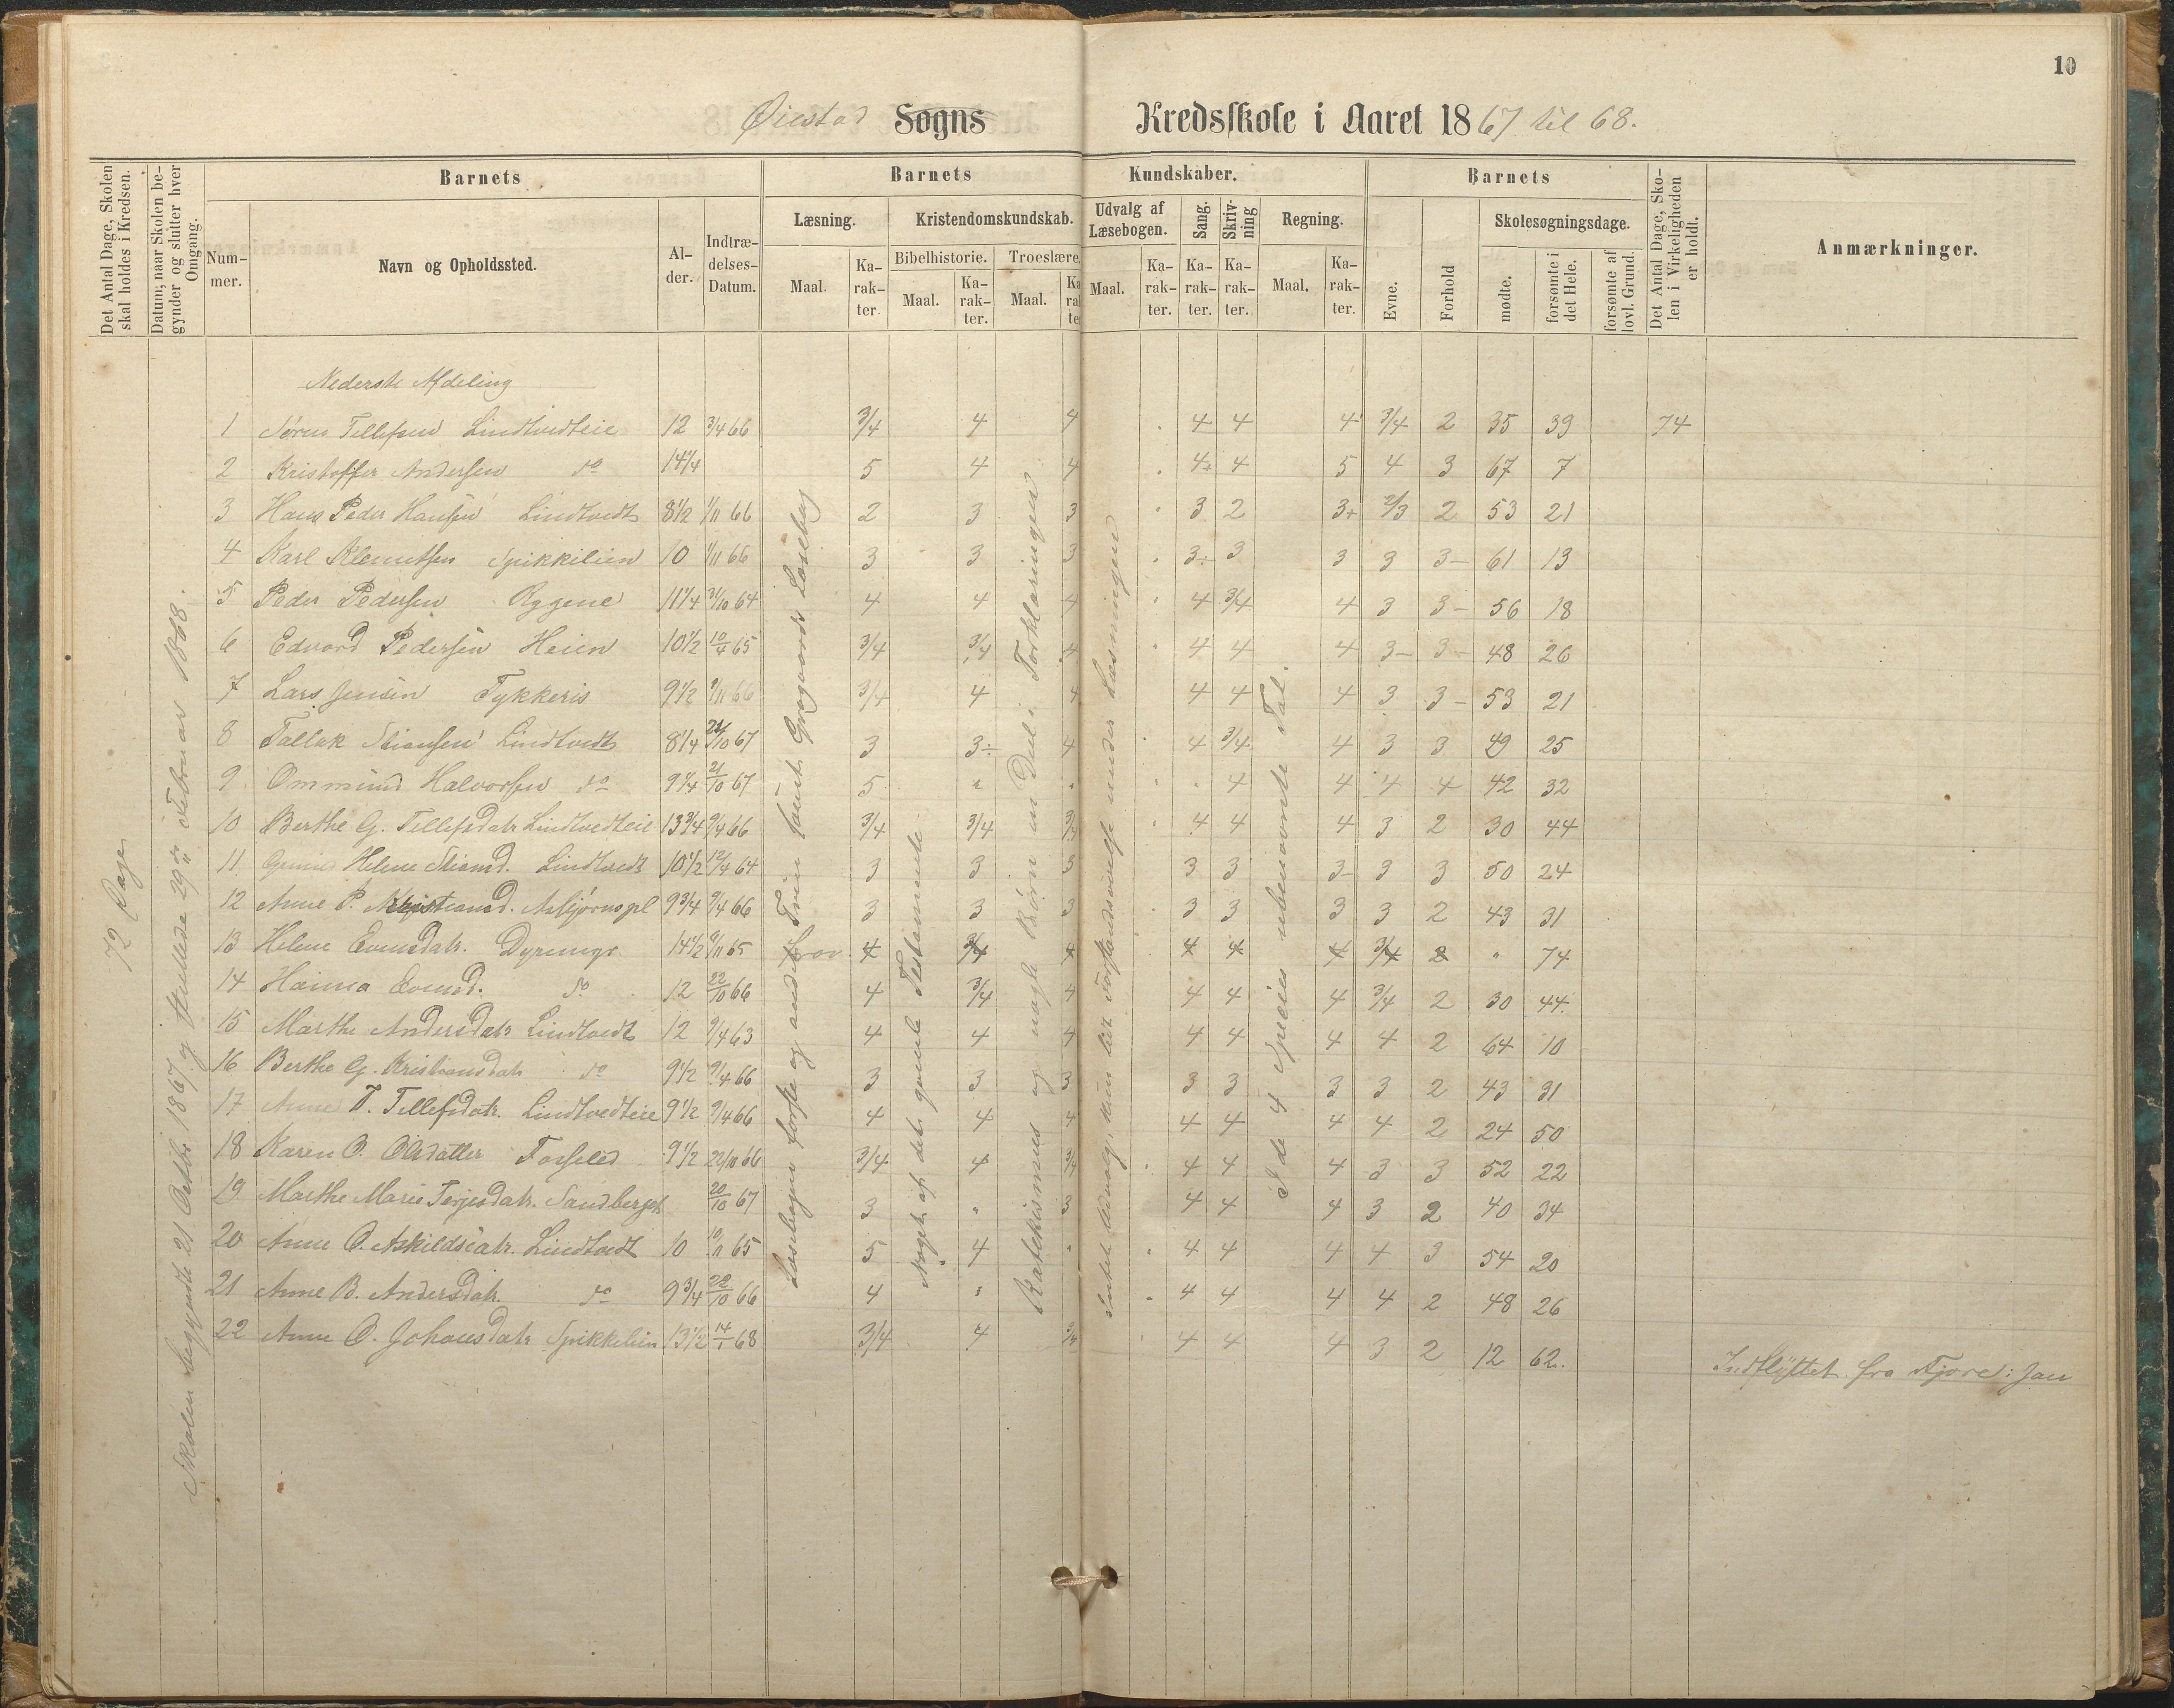 10
Øiestad Sogns Kredsskole i Aaret 1867 til 68.
Det Antal Dage, Skolen skal holdes i Kredsen.
Datum, naar Skolen begynder og slutter hver Omgang.
Barnets
Barnets Kundskaber.
Barnets
Det Antal Dage, Skolen i Virkeligheden er holdt.
Anmærkninger.
Nummer.
Navn og Opholdssted.
Alder.
Indtrædelses-Datum.
Læsning.
Kristendomskundskab.
Udvalg af Læsebogen.
Sang.
Skrivning
Regning.
Evne.
Forhold
Skolesøgningsdage.
Bibelhistorie.
Troeslære.
Maal.
Karakter.
Maal.
Karakter.
Maal.
Karakter
Maal.
Karakter.
Karakter.
Karakter.
Maal.
Karakter.
mødte.
forsømte i det Hele.
forsømte af lovl. Grund.
72 Dage
Skolen begyndte 21 Octbr 1867 og sluttede 29 Februar 1868.
Nederste Afdeling
1 Søren Tellefsen Lindtvedteie 12 3/4 66 3/4 4 4 4 4 4 3/4 2 35 39 74
2 Kristoffer Andersen do 14 1/4 5 4 4 4+ 4 5 4 3 67 7
3 Hans Peder Hansen Lindtvedt 8 1/2 1/11 66 2 3 3 3 2 3+ 2/3 2 53 21
4 Karl Klemetsen Spikkilien 10 1/11 66 3 3 3 3÷ 3 3 3 3- 61 13
5 Peder Pedersen Rygene 11 1/4 31/10 64 4 4 4 4 3/4 4 3 3- 56 18
6 Edvard Pedersen Heien 10 1/2 10/4 65 3/4 3/4 4 4 4 4 3- 3- 48 26
7 Lars Jensen Tykkeris 9 1/2 9/11 66 3/4 4 4 4 4 4 3 3- 53 21
8 Tallak Stiansen Lindtvedt 8 1/4 21/10 67 3 3÷ 4 4 3/4 4 3 3 49 25
9 Ommund Halvorsen do 9 1/4 21/10 67 5 " " 4 4 4 4 42 32
10 Berthe G. Tellefsdatr Lindtvedteie 13 3/4 9/4 66 3/4 3/4 3/4 4 4 4 3 2 30 44
11 Helene Stiansd. Lindtvedt 10 1/2 12/4 64 3 3 3 3 3 3- 3 3 50 24
12 Anne P. Kristiansd. Asbjørnspl 9 3/4 9/4 66 3 3 3 3 3 3 3 2 43 31
13 Helene Evensdatr. 14 1/2 9/11 65 4 3/4 4 4 4 4 3/4 2 " 74
14 Hanna Evensd. do 12 22/10 66 4 3/4 4 4 4 4 3/4 2 30 44
15 Marthe Andersdatr Lindtvedt 12 9/4 63 4 4 4 4 4 4 4 2 64 10
16 Berthe G. Kristiansdatr do 9 1/2 9/4 66 3 3 3 3 3 3 3 2 43 31
17 Anne T. Tellefsdatr. Lindtvedteie 9 1/2 9/4 66 4 4 4 4 4 4 4 2 24 50
18 Karen O. Olsdatter 9 1/2 22/10 66 3/4 4 3/4 4 4 4 3 3 52 22
19 Marthe Marie Terjesdatr. Sandberget 20/10 67 3 " 3 4 4 4 3 2 40 34
20 Anne O. Askildsdatr. Lindtvedt 10 10/11 65 5 4 " 4 4 4 4 3 54 20
21 Anne B. Andersdatr. do 9 3/4 22/10 66 4 " 4 4 4 4 2 48 26
22 Anne O. Johansdatr Spikkelien 13 1/2 14/1 68 3/4 4 3/4 4 4 4 3 2 12 62.
Indflyttet fra Fjære i Jan
Læsebogens første og andet Trin samt Gregaards Læsebog
Noget af det gamle Testamente
Katekismus og nogle Børn en Deel i Forklaringen
Intet Udvalg, kun lidt Forstandsøvelse under Læsningen
I de 4 Species ubenævnte Tal.